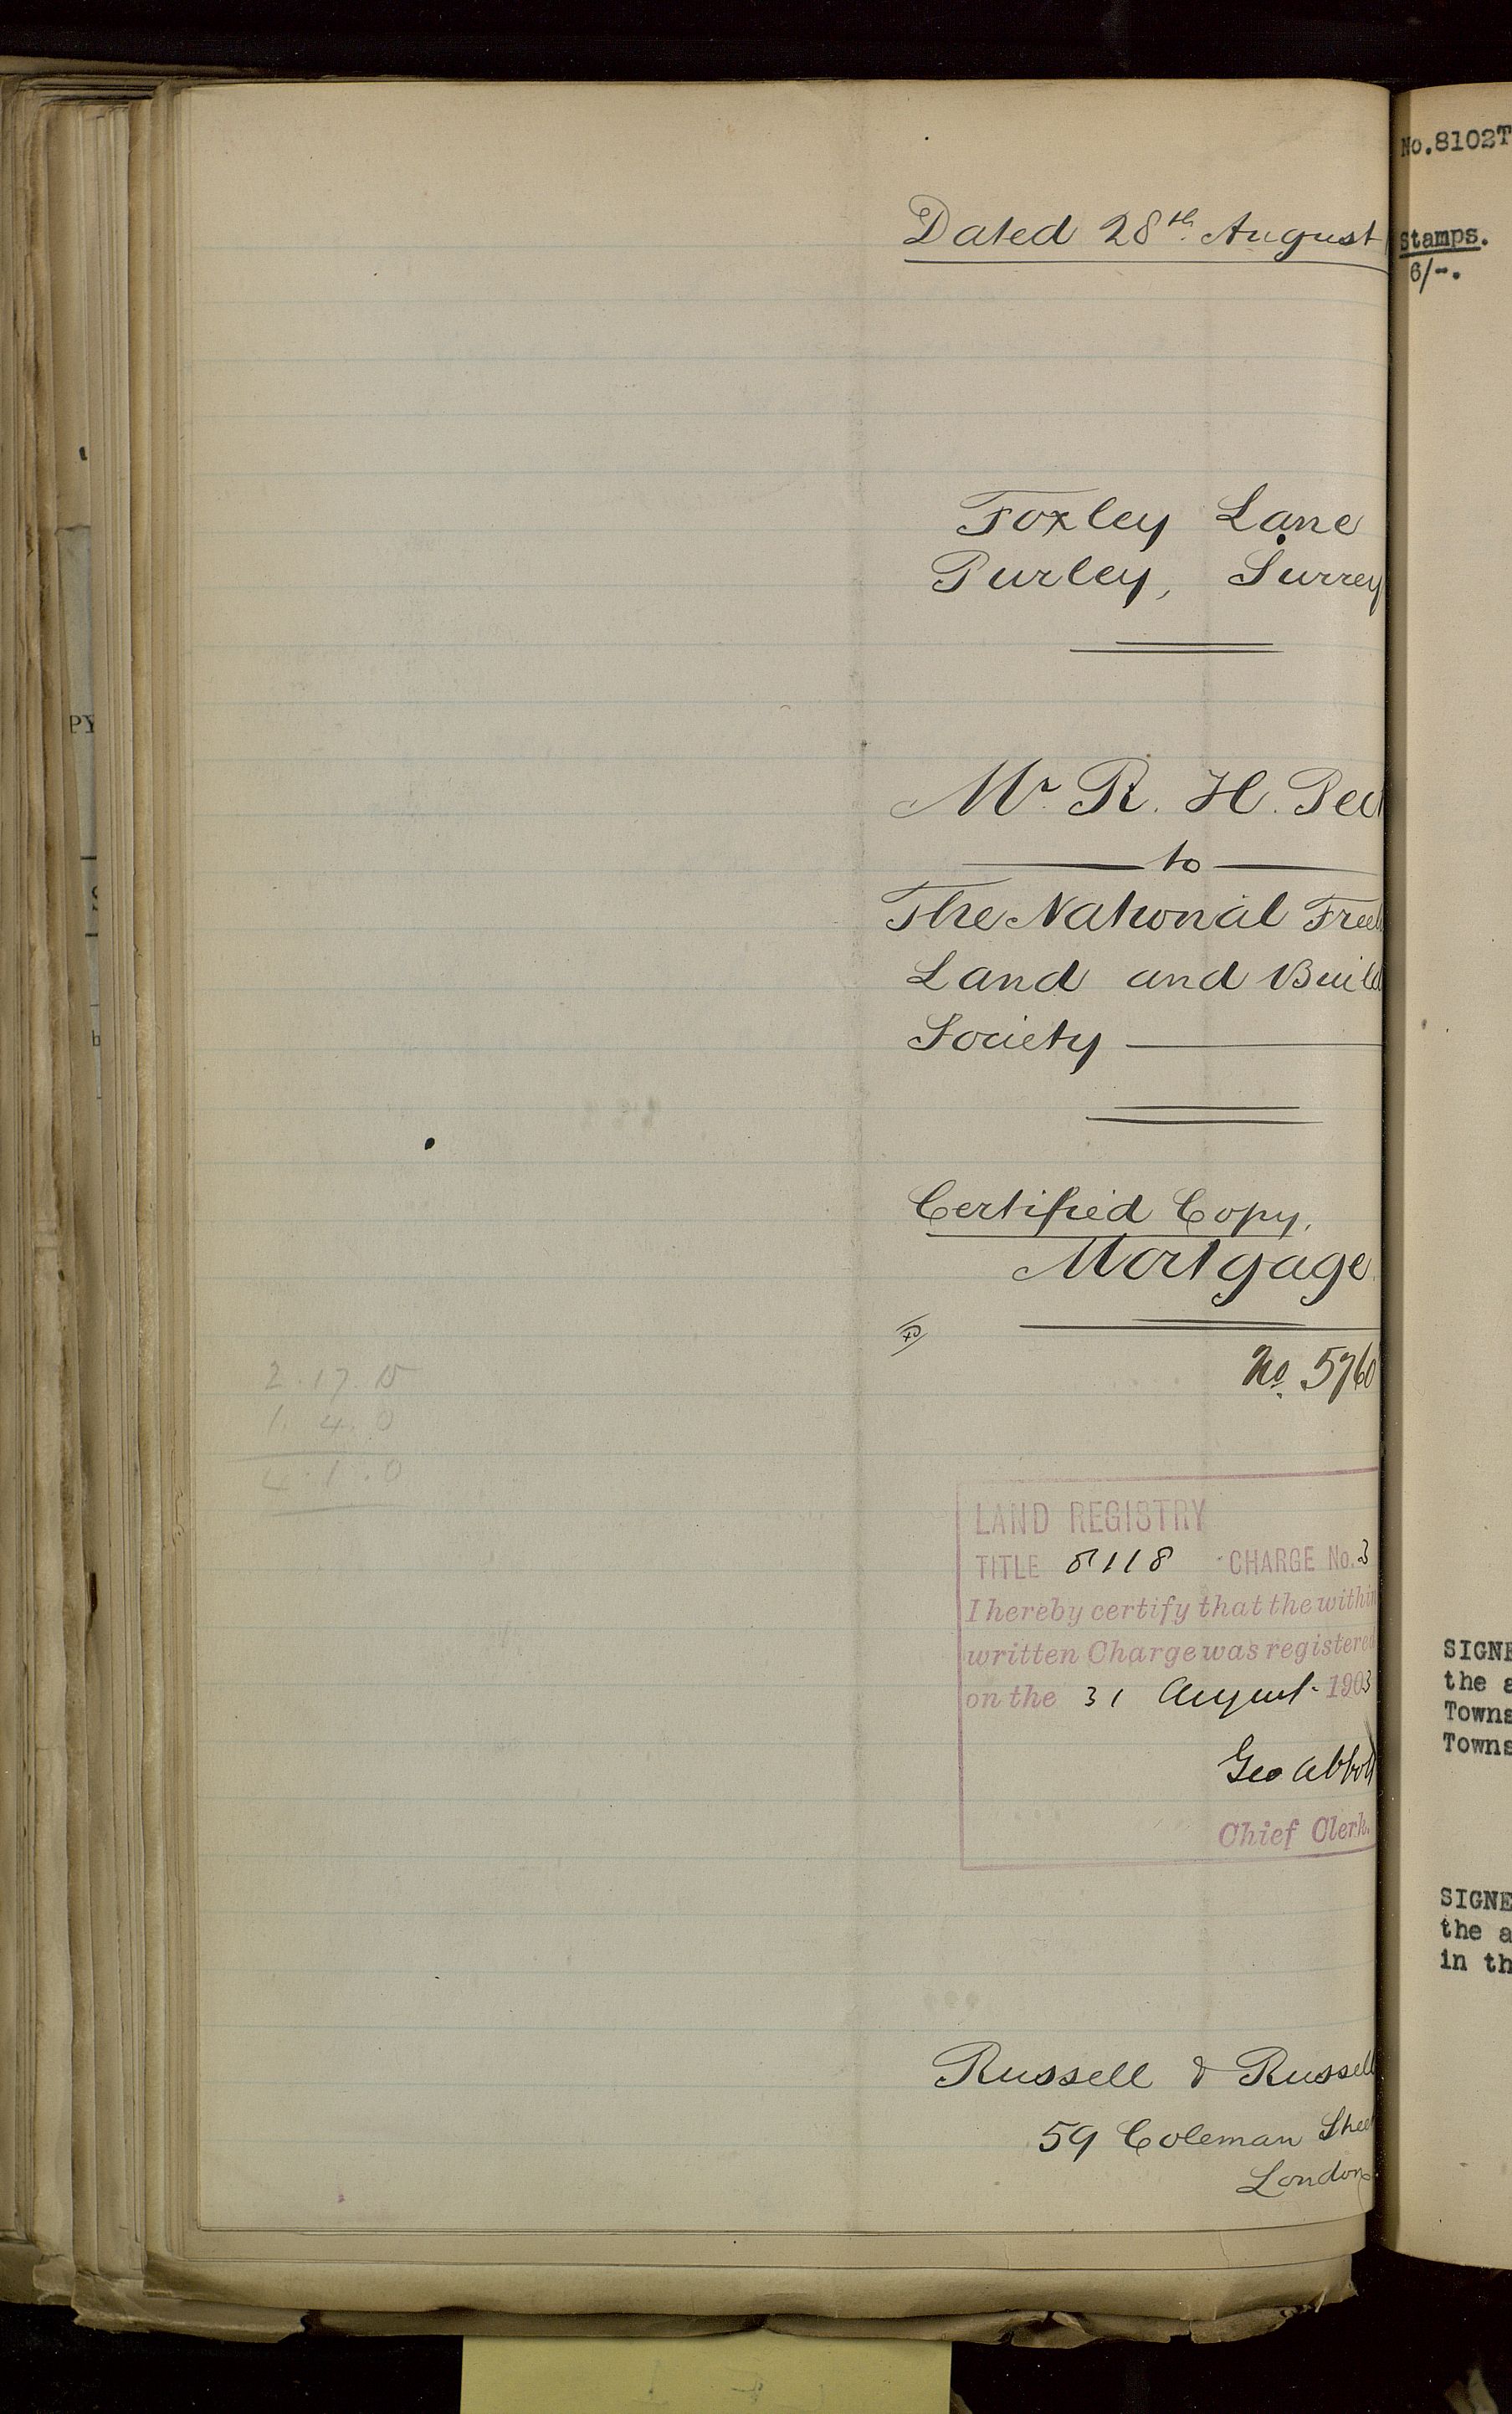 Dated 28th August
Foxley Lane
Purley, Surrey
Mr. R. H.
to
The National
Land and
Society
Certified Copy.
Mortgage.
No. 5760
2.17.
1. 4. 0
4. 1. 0
LAND REGISTRY
TITLE 8118 CHARGE No. 3
I hereby certify that the within
written Charge was registered
on the 31 August 1903
Geo Abbott
Chief Clerk.
Russell & Russell
59 Coleman Street
London
PY
No.8102T
Stamps.
6/-.
SIGNE
the a
Towns
Towns
SIGNE
the a
in th